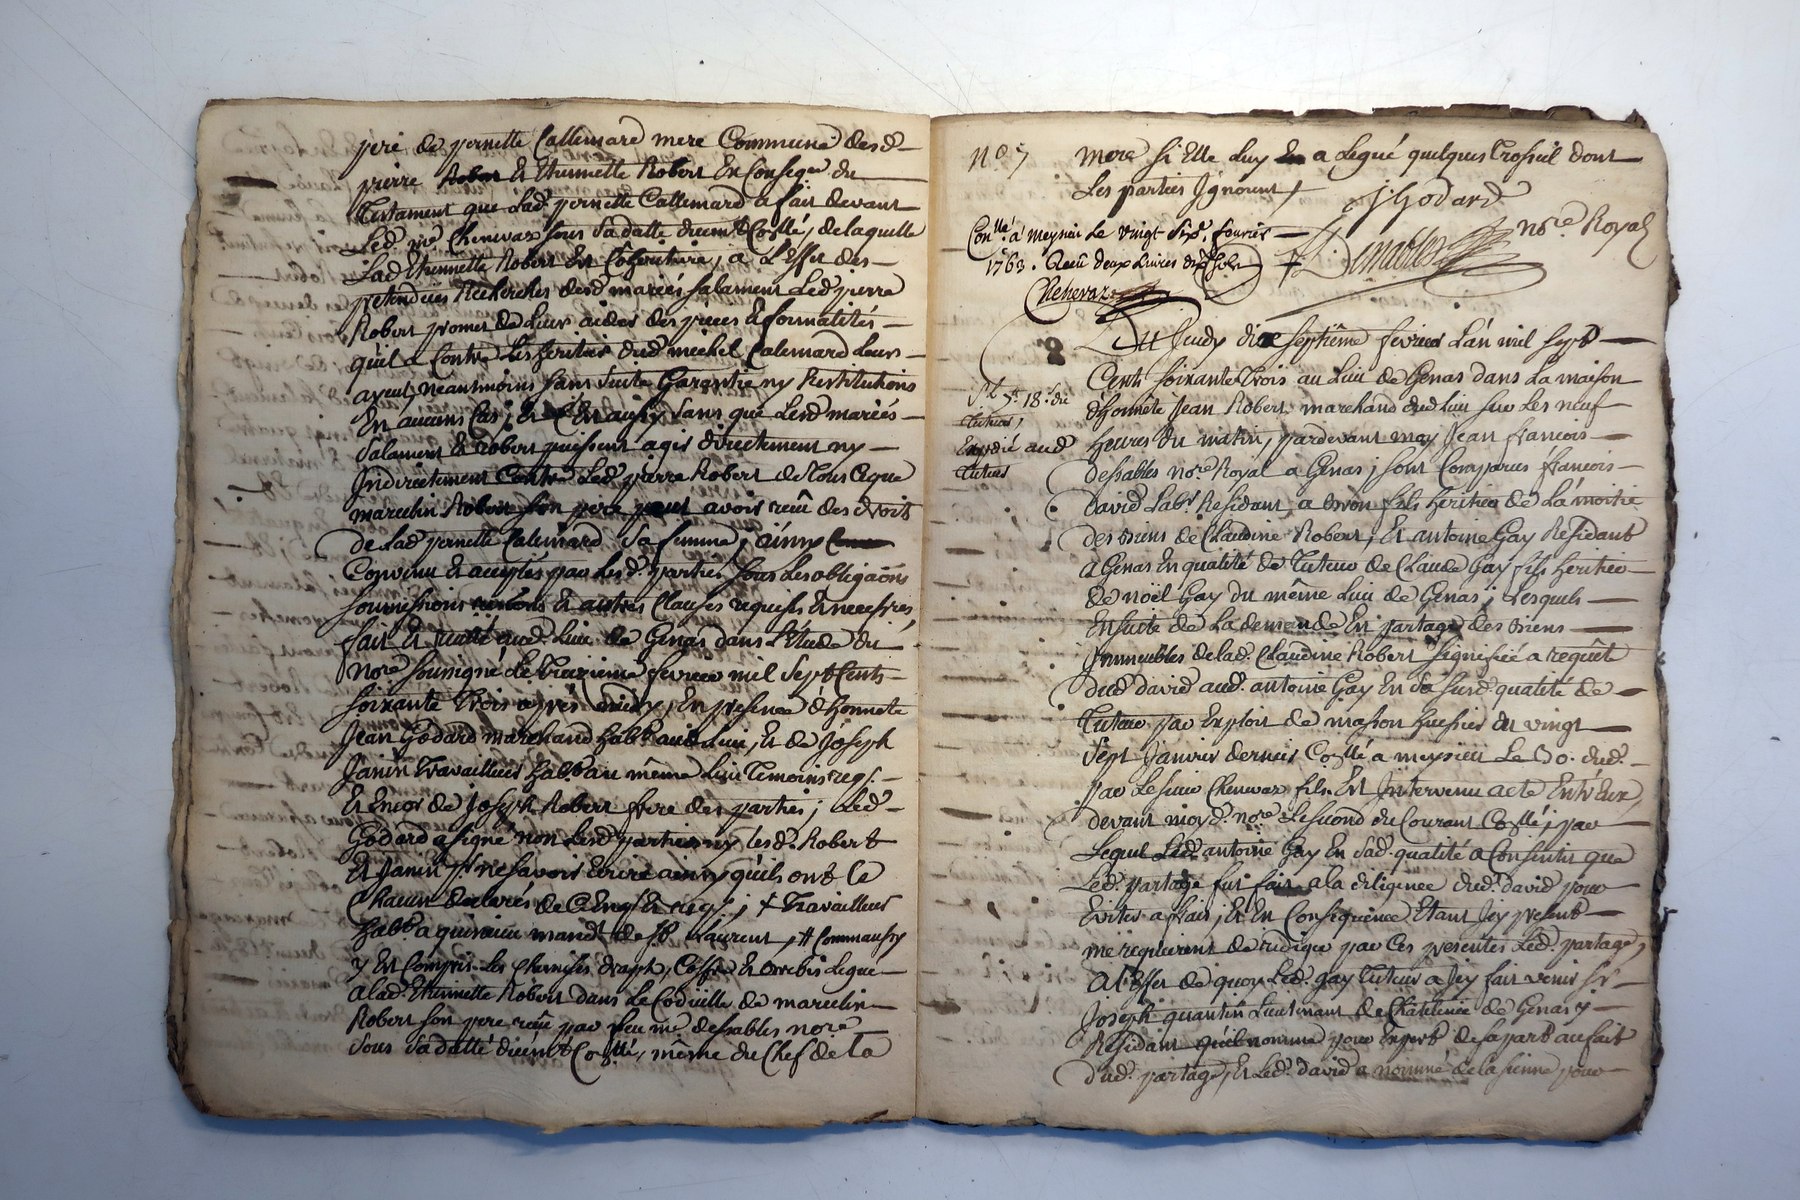 pere de pernette Callemard mere Commune desd.
pierre Robert Et Etiennette Robert En Conseq.ce du
Testament que Lad.e pernette Callemard a fait devant
Led. m.e Chenevaz sous sa datte duem.t Co.llé, de laquelle
Lad Etiennette Robert Est Cohéritière, a L'Effet des
pretendües Recherches desd mariés salament Led pierre
Robert promet de Leur aider des pieces & formalités
quil a Contre Les heritiers dud michel Calemard Leur
ayeul, neantmoins sans suite Garantie ny Restitutions
En aucuns Cas, Et En aussy sans que Lesd mariés
salament Et Robert puissent agir directement ny
Indirectement Contre Led. pierre Robert de Tous Ce que
marcelin Robert son pere peut avoir reçû des droits
de Lad pernette Calemard sa femme, ainsy
Convenu Et accepté par Les d. parties sous Les obligaōns
soumissions Et autres Clauses requises Et necess.res,
fait Et aud. Lieu de Genas dans L'Etude du
No.re soussigné Le Treizieme fevrier mil Sept Cents
soixante Trois après midy, En presence d'honnete
Jean Godard marchand hab.t aud. Lieu, Et de Joseph
Janin Travailleur hab.t au même Lieu Temoins req.s
Et Encor de Joseph Robert frere des parties, Led
Godard a signé non Lesd parties ny Les d. Robert
Et Janin p.r ne savoir Ecrire ainsy quils ont Ce
Chacun declarés de Ce Enq.s Et req.s; + Travailleur
hab.t a mand.t de s.t Laurent, # Comm aussy
y Est Compris Les Chemises draps, Coffre Et Brebis Legué
a Lad. Etiennette Robert dans Le Codicille de marcelin
Robert son pere reçu par feu m.e dessables no.re
sous sa datte düem.t Co.llé, même du Chef de La
N.o 7
mere si Elle Luy En a Legué quelques Trosseil dont
Les parties Jgnorent /
J Godard
Con.llé a meysieu Le vingt Six.e fevrier
1763. Reçu deux Livres dix sols
Chenevaz
Dessables no.re Royal
8
Du Jeudy dix septiême fevrier L'an mil sept
Cents soixante Trois au Lieu de Genas dans La maison
d'honnête Jean Robert marchand dud Lieu sur Les neuf
heures du matin, pardevant moy Jean francois
dessables no.re Royal a Genas, sont Comparus francois
david Lab.r Residant a Bron fils heritier de La moitié
des biens de Claudine Robert, Et antoine Gay Residant
a Genas En qualité de Tuteur de Claude Gay fils heritier
de noël Gay du même Lieu de Genas, Lesquels
Ensuite de La demande En partage des biens
Jmmeubles de Lad. Claudine Robert signifiée a requête
dud david aud. antoine Gay En sa susd. qualité de
Tuteur par Exploit de masson huissier du vingt
Sept Janvier dernier Co.llé a meysieu Le 30. dud.
par Le sieur Chenevaz fils Est Jntervenu acte Entr'Eux,
devant moy d. no.re Le second du Courant Co.llé, par
Lequel Led. antoine Gay En sad. qualité a Consenti que
Led. partage fut fait a la diligence dud. david pour
Eviter a frais, Et En Conséquence Etant Jcy present
me requierent de rediger par Ces presentes Led. partage,
a L'Effet de quoy Led. Gay Tuteur a Jcy fait venir s.r
Joseph quantin Lieutenant de Chatelenie de Genas y
Residant quil nomme pour Expert de sa part au fait
dud. partage, Et Led. david a nommé de La sienne pour
18.s du
Tuteur,
Expedié aud
Tuteur